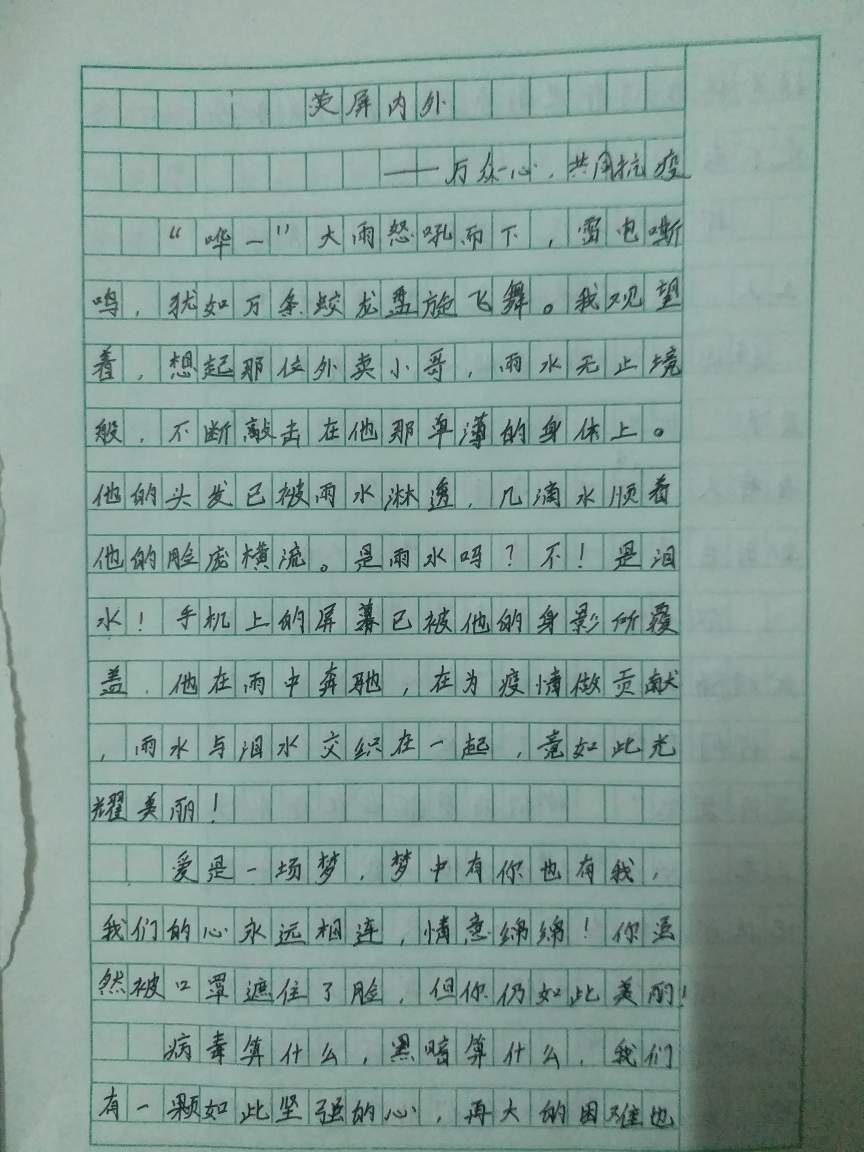 荧屏内外
——万众一心，共同抗疫
“哗—”大雨怒吼而下，雷电嘶
鸣，犹如万条蛟龙盘旋飞舞。我观望
着，想起那位外卖小哥，雨水无止境
般，不断敲击在他那单薄的身体上。
他的头发已被雨水淋透，几滴水顺着
他的脸庞横流。是雨水吗？不！是泪
水！手机上的屏幕已被他的身影所覆
盖，他在雨中奔驰，在为疫情做贡献
，雨水与泪水交织在一起，竟如此光
耀美丽！
爱是一场梦，梦中有你也有我，
我们的心永远相连，情意绵绵！你虽
然被口罩遮住了脸，但你仍如此美丽！
病毒算什么，黑暗算什么，我们
有一颗如此坚强的心，再大的困难也